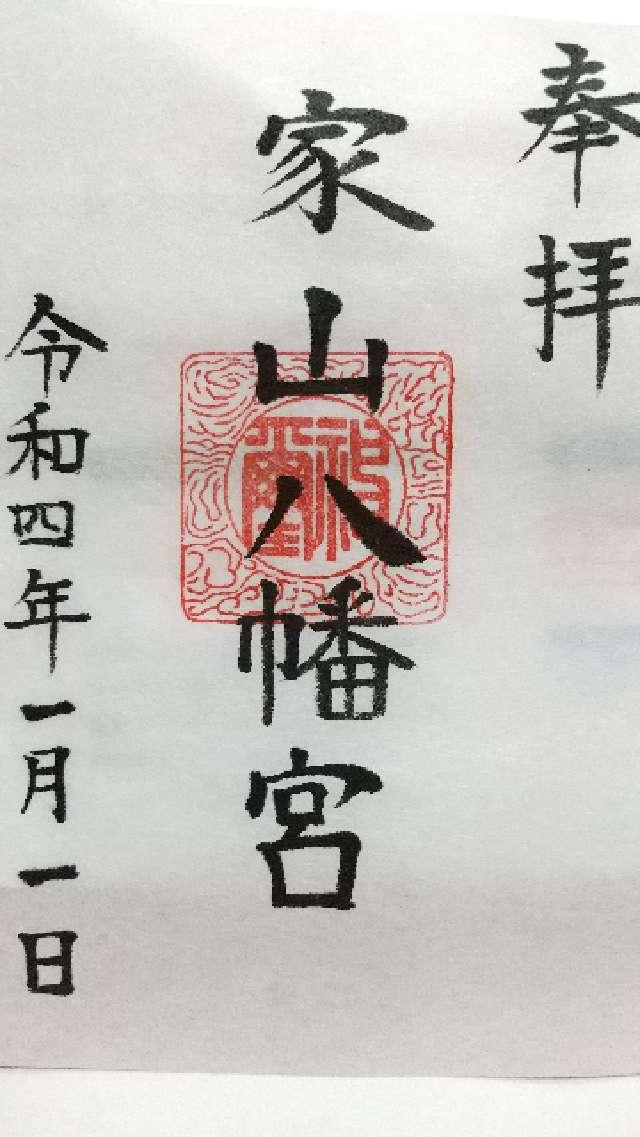 奉拝
家山八幡宮
令和四年一月一日